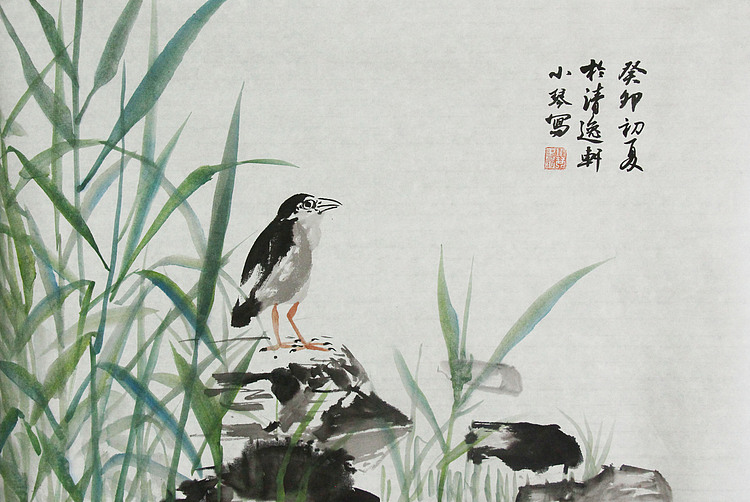 癸卯初夏
於清逸軒
小琴寫